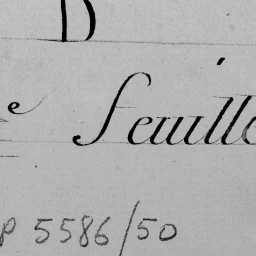 D
e feuille
P 5586/50